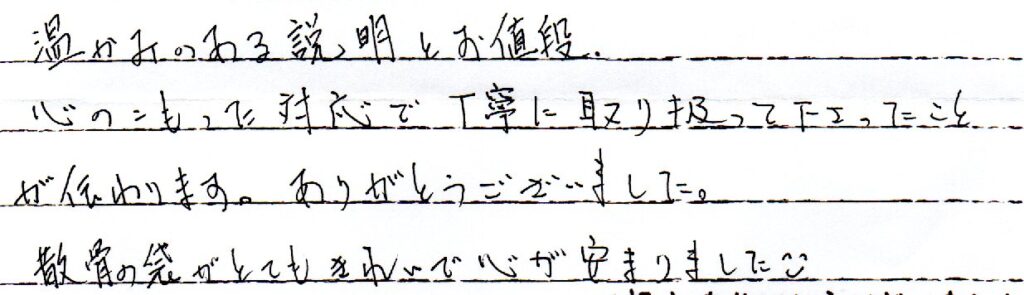 温かみのある説明とお値段.
心のこもった対応で丁寧に取り扱って下さったこと
が伝わります。ありがとうございました。
散骨の袋がとてもきれいで心が安まりました